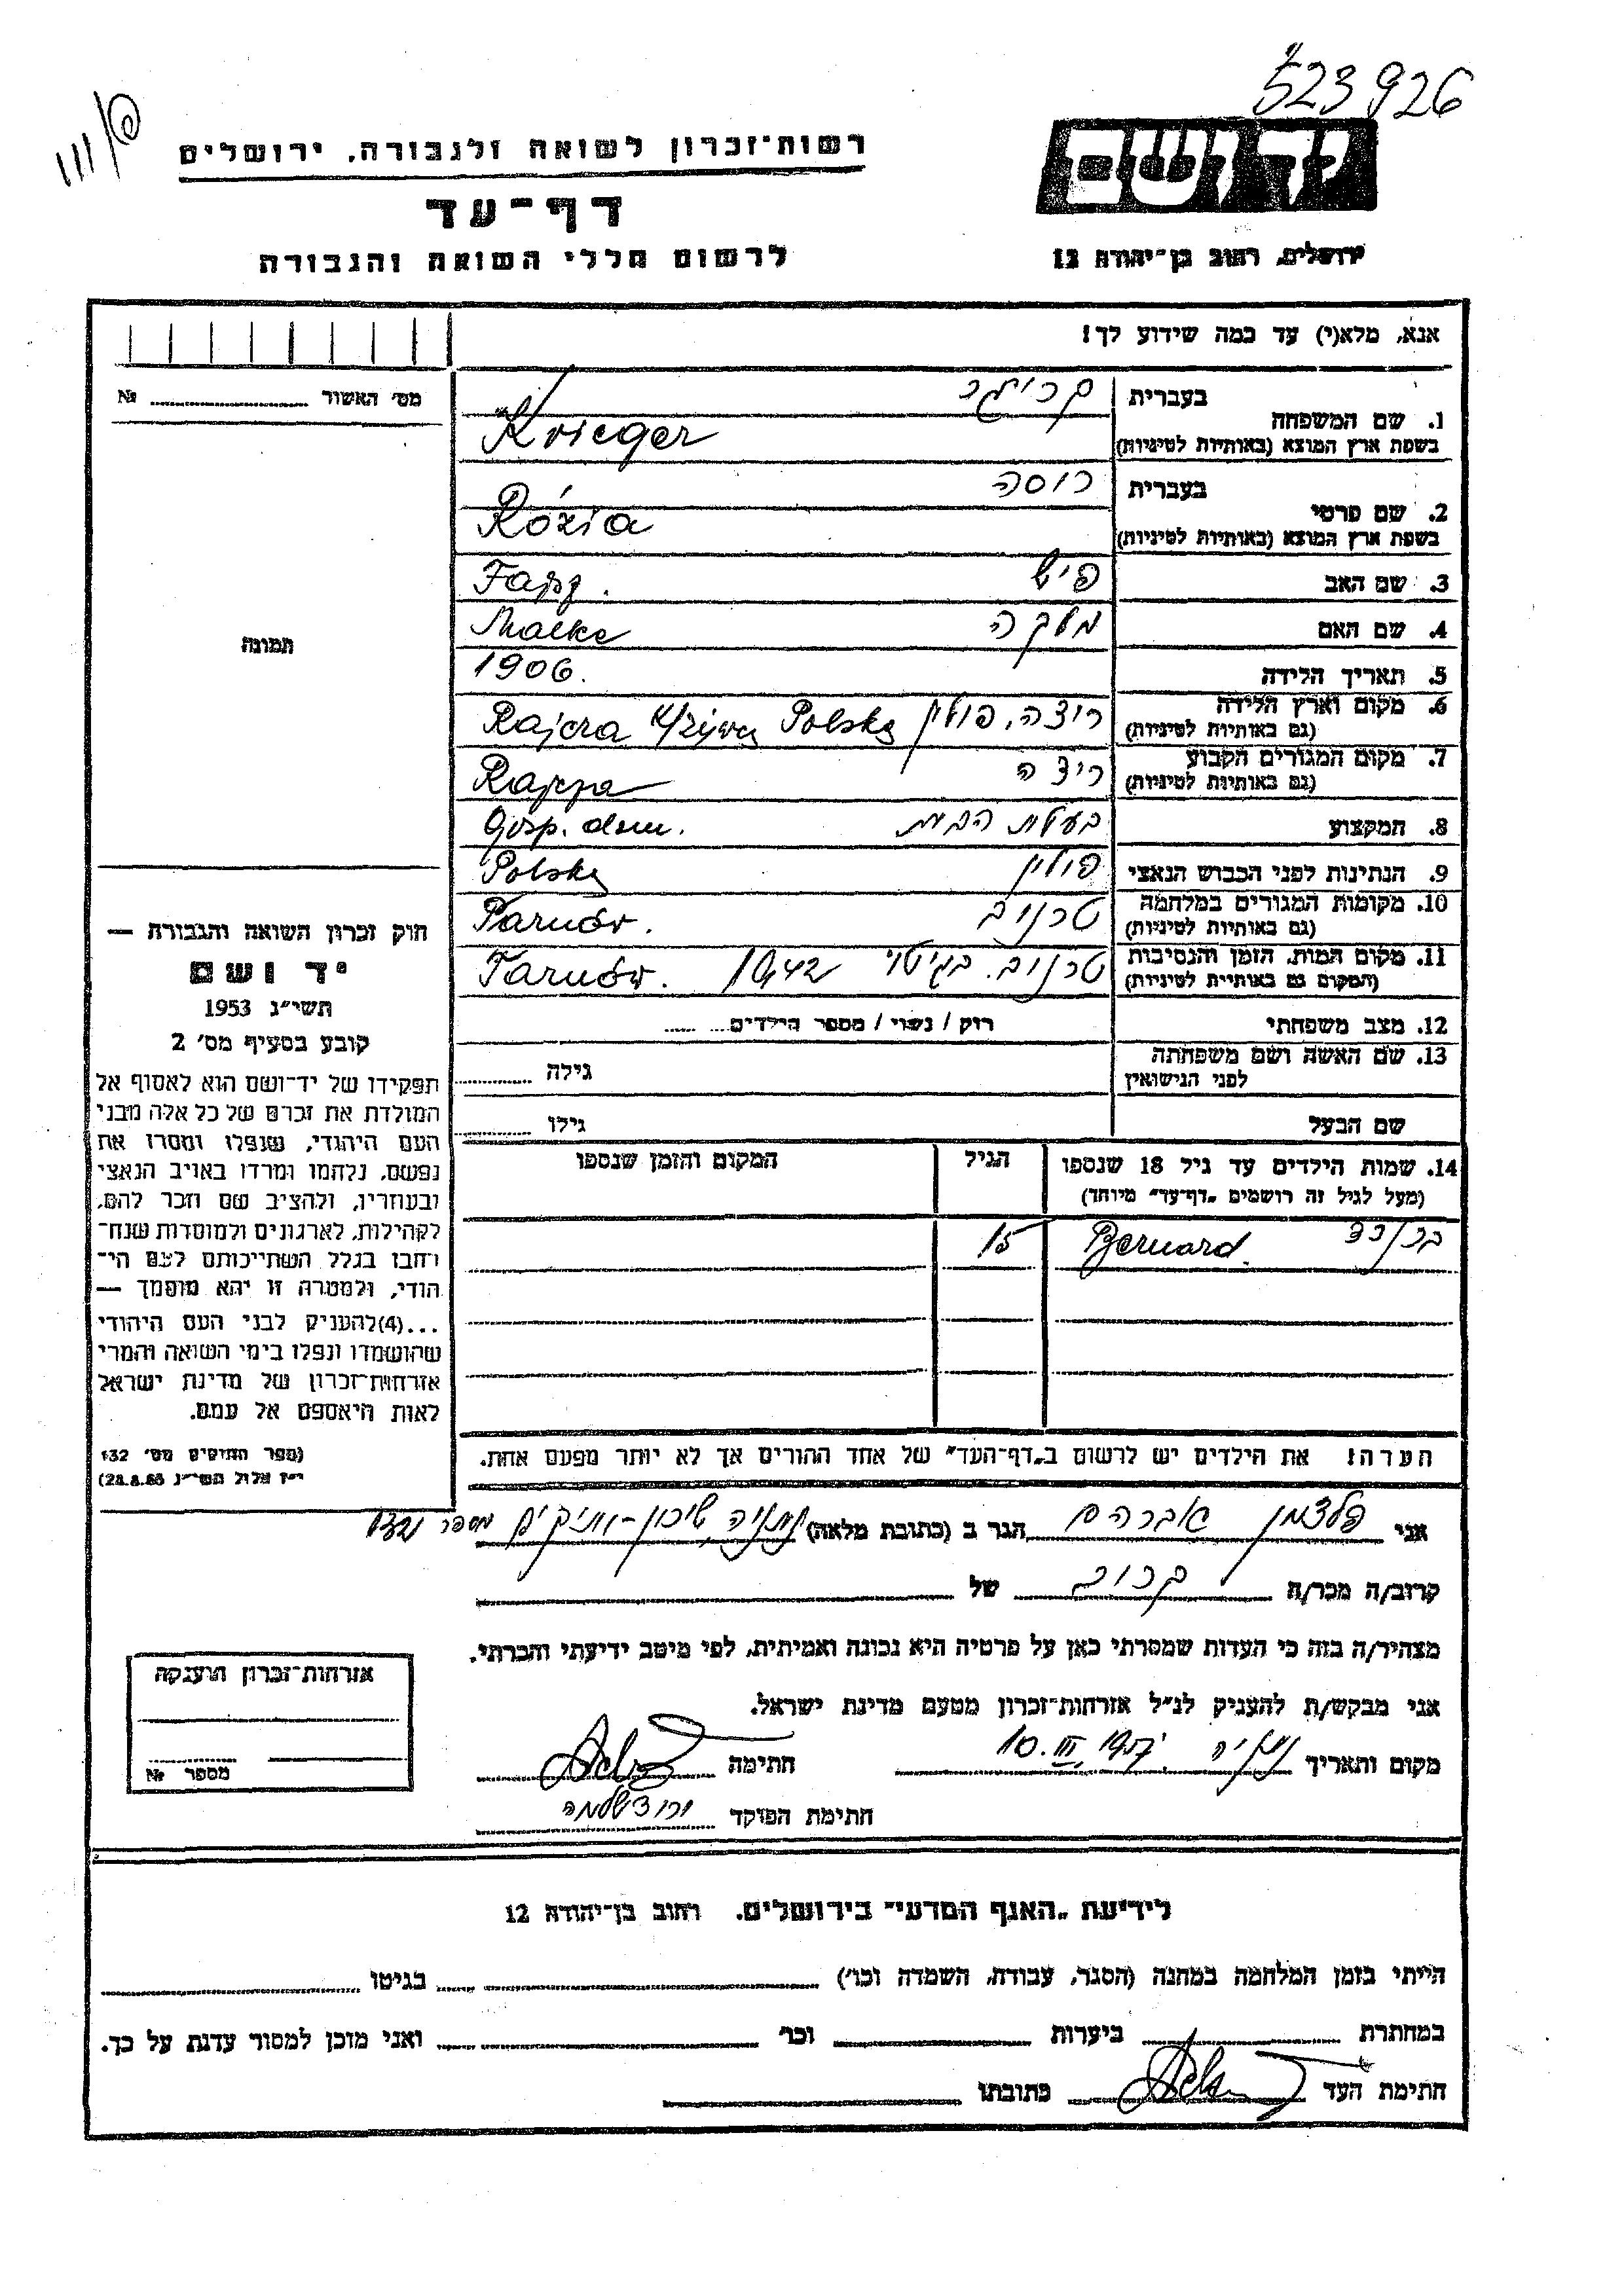 523926
רשות־זכרון לשואה ולגבורה, ירושלים
יד ושם
דף־עד
לרשום חללי השואה והגבורה
ירושלים, רחוב בן־יהודה 12
אנא, מלא(י) עד כמה שידוע לך!
מס' האשור №
1. שם המשפחה
בעברית קריגר
בשפת ארץ המוצא (באותיות לטיניות) Krieger
2. שם פרטי
בעברית רוסה
בשפת ארץ המוצא (באותיות לטיניות) Rózia
3. שם האב
4. שם האם מלקה Malke
5. תאריך הלידה 1906.
6. מקום וארץ הלידה ריצה, פולין Rajcza Polska
(גם באותיות לטיניות)
7. מקום המגורים הקבוע ריצה Rajcza
(גם באותיות לטיניות)
8. המקצוע בעלת הבית Gosp. dom.
9. הנתינות לפני הכבוש הנאצי פולין Polska
10. מקומות המגורים במלחמה טרנוב Tarnów.
(גם באותיות לטיניות)
11. מקום המות, הזמן והנסיבות טרנוב. בגיטו 1942 Tarnów.
(המקום גם באותיות לטיניות)
12. מצב משפחתי רוק / נשוי / מספר הילדים
13. שם האשה ושם משפחתה
לפני הנישואין
גילה
שם הבעל גילו
14. שמות הילדים עד גיל 18 שנספו
(מעל לגיל זה רושמים „דף־עד" מיוחד)
הגיל
המקום והזמן שנספו
ברנרד Bernard 15
הערה! את הילדים יש לרשום ב„דף־העד" של אחד ההורים אך לא יותר מפעם אחת.
תמונה
חוק זכרון השואה והגבורה —
יד ושם
תשי״ג 1953
קובע בסעיף מס' 2
תפקידו של יד־ושם הוא לאסוף אל
המולדת את זכרם של כל אלה מבני
העם היהודי, שנפלו ומסרו את
נפשם, נלחמו ומרדו באויב הנאצי
ובעוזריו, ולהציב שם וזכר להם,
לקהילות, לארגונים ולמוסדות שנח־
רבו בגלל השתייכותם לעם הי־
הודי, ולמטרה זו יהא מוסמך —
...(4) להעניק לבני העם היהודי
שהושמדו ונפלו בימי השואה והמרי
אזרחות־זכרון של מדינת ישראל
לאות היאספם אל עמם.
(ספר החוקים מס' 132
י״ז אלול תשי״ג
אני פלצמן אברהם הגר ב (כתובת מלאה) נתניה שיכון-ותיקים מספר
קרוב/ה מכר/ה קרוב של
מצהיר/ה בזה כי העדות שמסרתי כאן על פרטיה היא נכונה ואמיתית, לפי מיטב ידיעתי והכרתי.
אני מבקש/ת להעניק לנ״ל אזרחות־זכרון מטעם מדינת ישראל.
מקום ותאריך נתניה 10.III 1957 חתימה
חתימת הפוקד
אזרחות־זכרון הוענקה
מספר №
לידיעת „האגף המדעי" בירושלים, רחוב בן־יהודה 12
הייתי בזמן המלחמה במחנה (הסגר, עבודה, השמדה וכו') בגיטו
במחתרת ביערות וכו' ואני מוכן למסור עדות על כך.
חתימת העד כתובתו